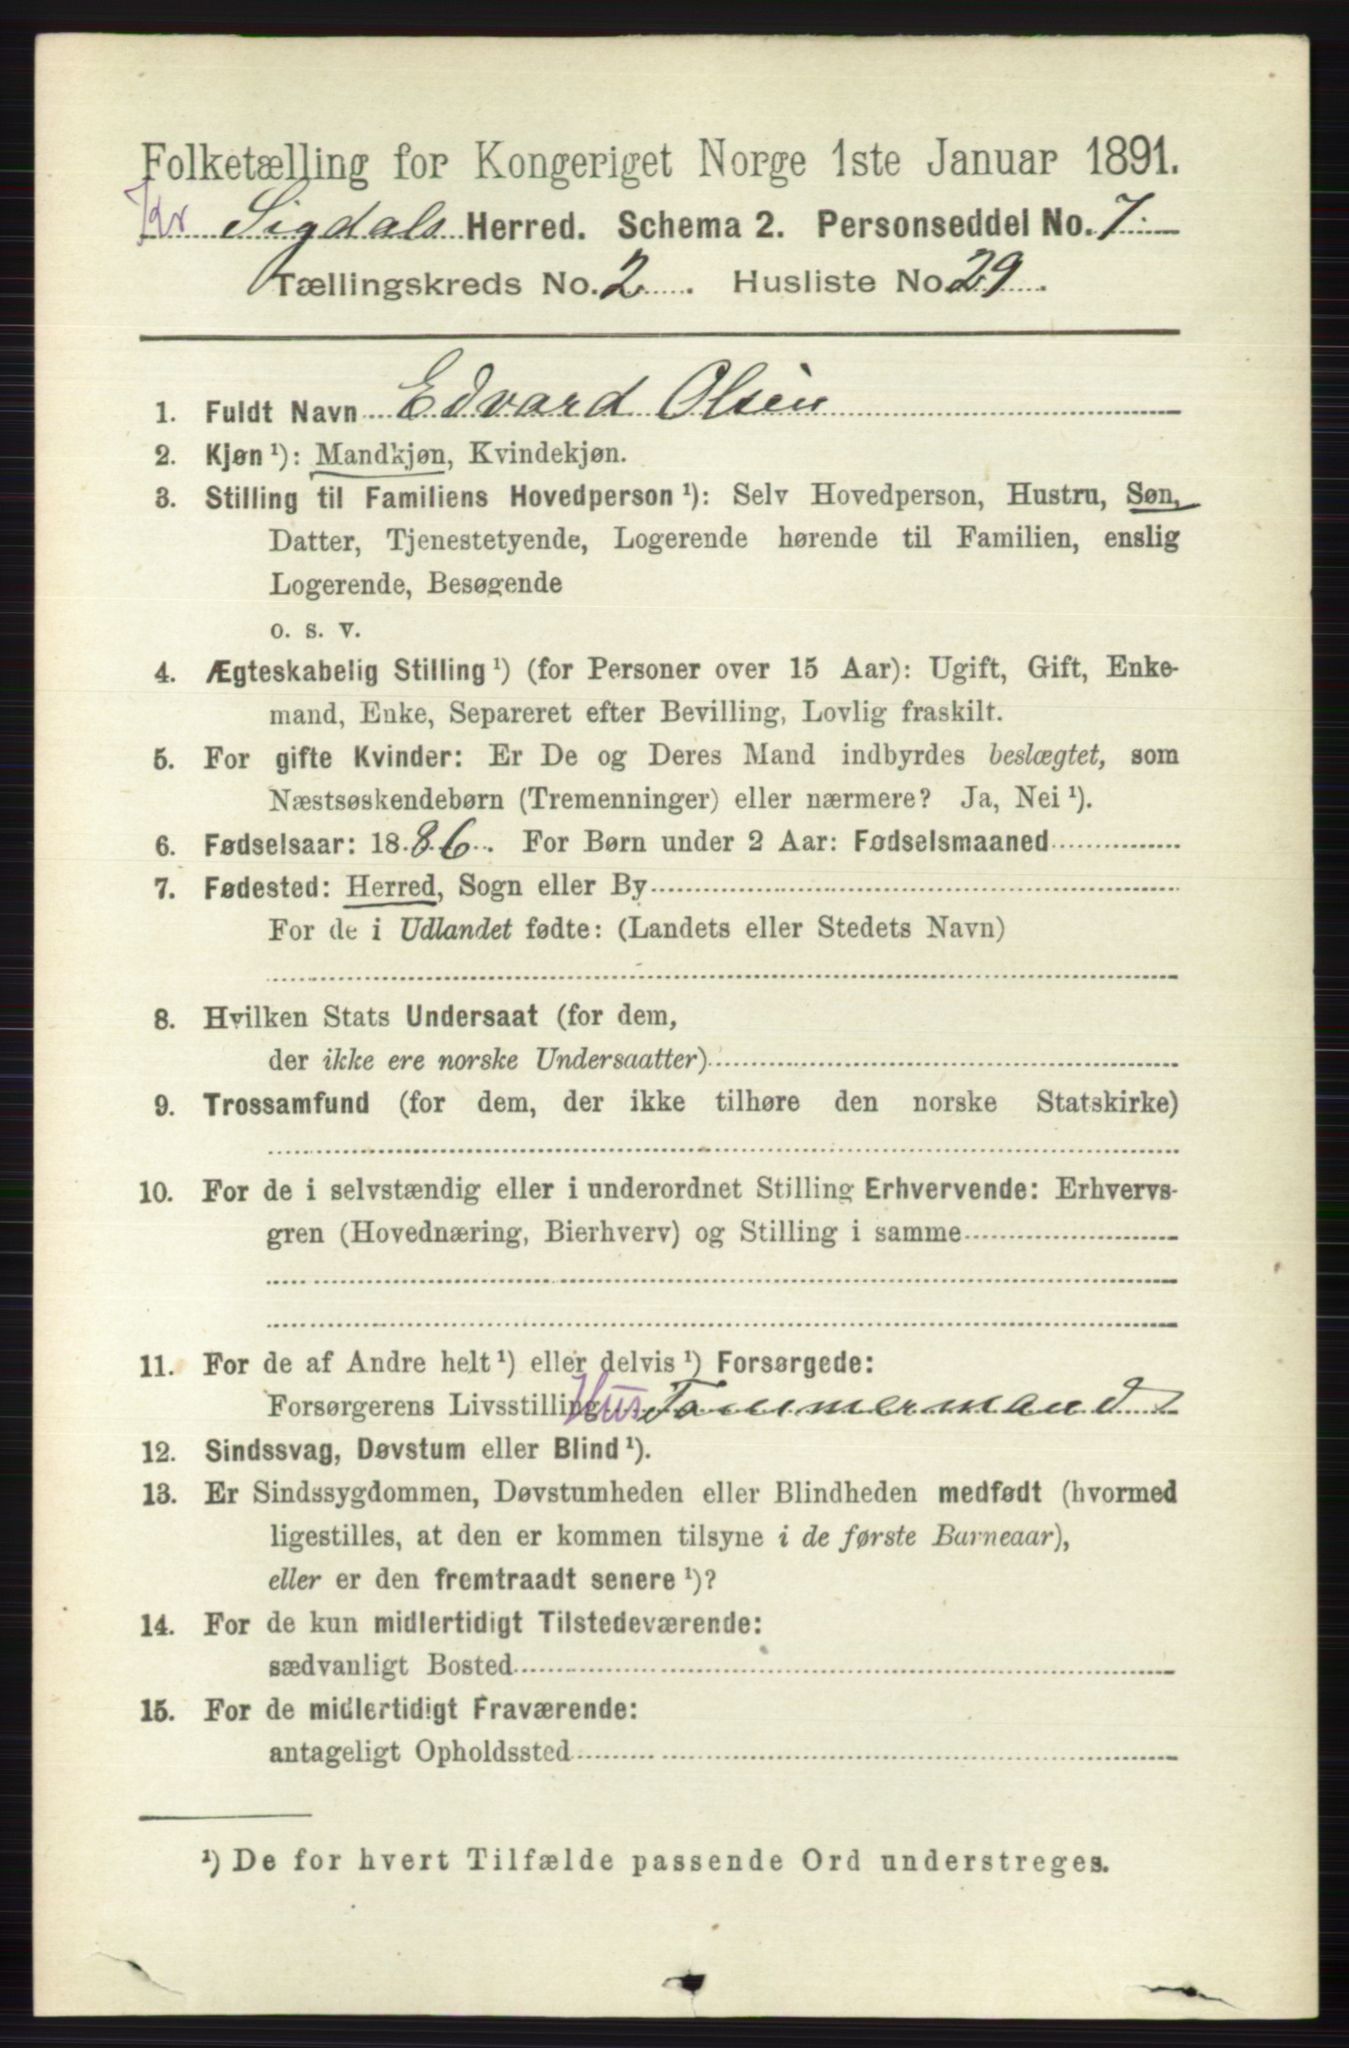 Folketælling for Kongeriget Norge 1ste Januar 1891.
Kr Sigdals Herred. Schema 2. Personseddel No. 7.
Tællingskreds No. 2. Husliste No. 29.
1. Fuldt Navn Edvard Olsen
2. Kjøn ¹): Mandkjøn, Kvindekjøn.
3. Stilling til Familiens Hovedperson ¹): Selv Hovedperson, Hustru, Søn,
Datter, Tjenestetyende, Logerende hørende til Familien, enslig
Logerende, Besøgende
o. s. v.
4. Ægteskabelig Stilling ¹) (for Personer over 15 Aar): Ugift, Gift, Enke-
mand, Enke, Separeret efter Bevilling, Lovlig fraskilt.
5. For gifte Kvinder: Er De og Deres Mand indbyrdes beslægtet, som
Næstsøskendebørn (Tremenninger) eller nærmere? Ja, Nei ¹).
6. Fødselsaar: 1886. For Børn under 2 Aar: Fødselsmaaned
7. Fødested: Herred, Sogn eller By
For de i Udlandet fødte: (Landets eller Stedets Navn)
8. Hvilken Stats Undersaat (for dem,
der ikke ere norske Undersaatter)
9. Trossamfund (for dem, der ikke tilhøre den norske Statskirke)
10. For de i selvstændig eller i underordnet Stilling Erhvervende: Erhvervs-
gren (Hovednæring, Bierhverv) og Stilling i samme
11. For de af Andre helt ¹) eller delvis ¹) Forsørgede:
Forsørgerens Livsstilling Hus Tømmermand
12. Sindssvag, Døvstum eller Blind ¹).
13. Er Sindssygdommen, Døvstumheden eller Blindheden medfødt (hvormed
ligestilles, at den er kommen tilsyne i de første Barneaar),
eller er den fremtraadt senere ¹)?
14. For de kun midlertidigt Tilstedeværende:
sædvanligt Bosted
15. For de midlertidigt Fraværende:
antageligt Opholdssted
¹) De for hvert Tilfælde passende Ord understreges.